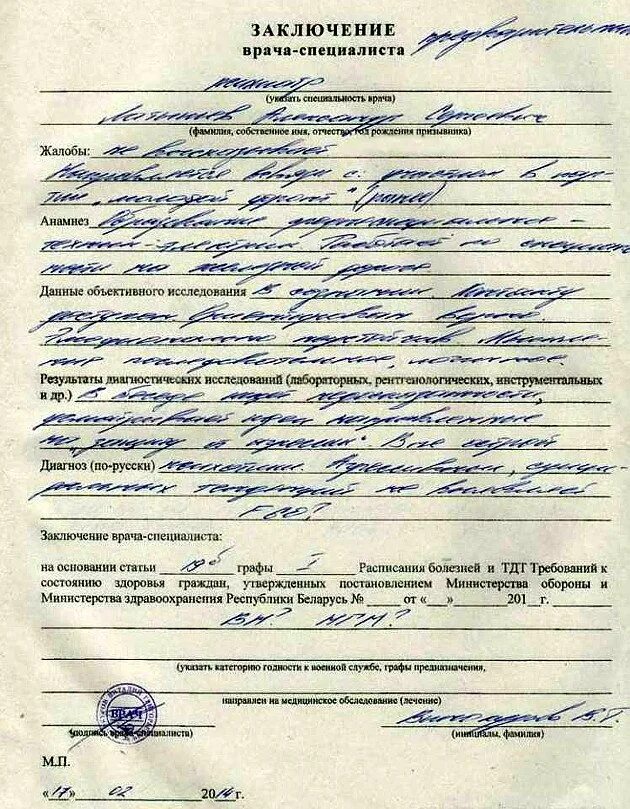 ЗАКЛЮЧЕНИЕ
врача-специалиста предварительн
психиатр
(указать специальность врача)
Александр Сергеевич
(фамилия, собственное имя, отчество, год рождения призывника)
Жалобы: не высказывает
Направляется в связи с участием в пар-
тии "молодой фронт" (ранее)
Анамнез Образование
техник-электрик Работает по специаль-
ности на железной дороге
Данные объективного исследования В сознании. Контакту
доступен Ориентирован верно.
Эмоционально Мышле-
ние последовательное, логичное.
Результаты диагностических исследований (лабораторных, рентгенологических, инструментальных
и др.) В беседе ищет
идеи направленные
на "защиту от агрессии". Вне острой
Диагноз (по-русски) психотики. Агрессивной, суици-
дальных тенденций не выявляет
F60?
Заключение врача-специалиста:
на основании статьи 19б графы I Расписания болезней и ТДТ Требований к
состоянию здоровья граждан, утвержденных постановлением Министерства обороны и
Министерства здравоохранения Республики Беларусь № от « » 201 г.
ВН? НГМ?
(указать категорию годности к военной службе, графы предназначения,
направлен на медицинское обследование (лечение)
ВРАЧ
(подпись врача-специалиста)
В.Г.
(инициалы, фамилия)
М.П.
«17» 02 2014г.